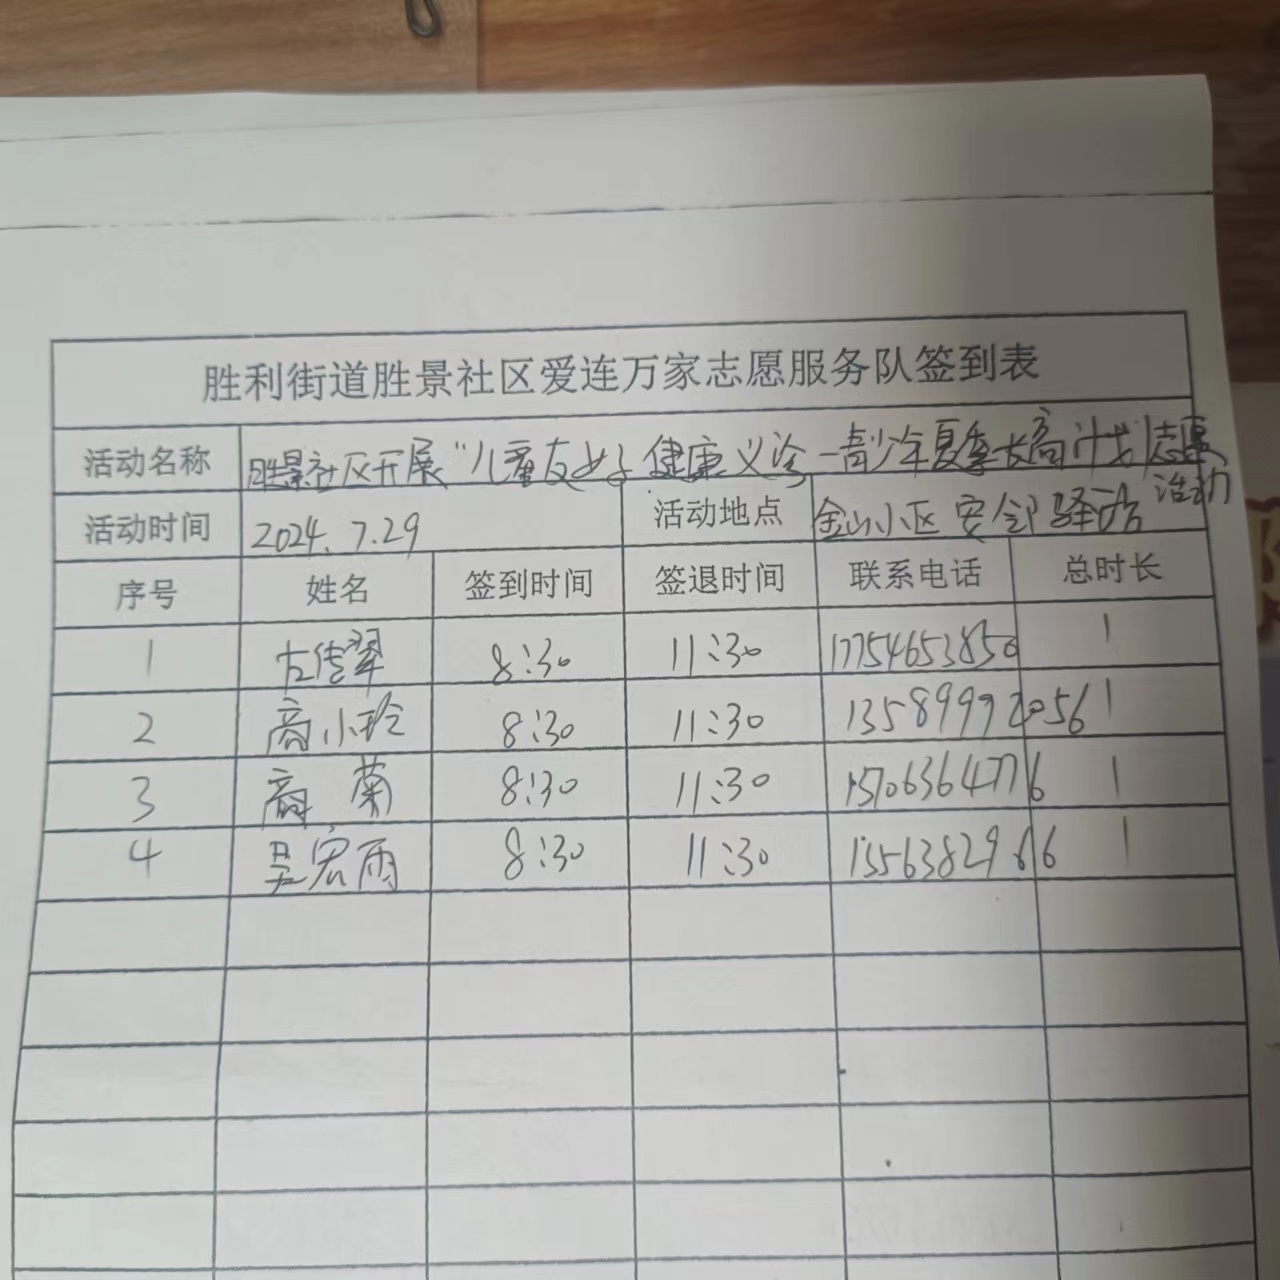 胜利街道胜景社区爱连万家志愿服务队签到表
活动名称 胜景社区开展“儿童友好 健康义诊-青少年夏季长高计划志愿活动
活动时间 2024.7.29 活动地点 金山小区安邻驿站
序号 姓名 签到时间 签退时间 联系电话 总时长
1 古传翠 8:30 11:30 17754653850 1
2 商小玲 8:30 11:30 13589992056 1
3 商菊 8:30 11:30 15706364776 1
4 吴宏雨 8:30 11:30 15563829616 1